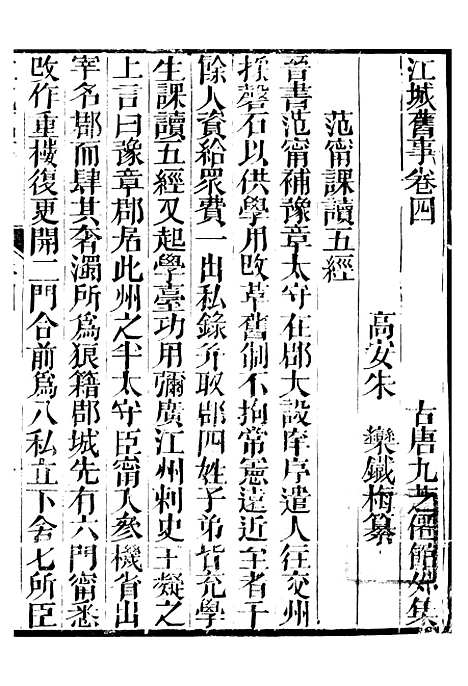 江城舊事卷四　古唐九芝僊館姝集
高安朱　欒鐵梅纂
范甯課讀五經
晉書范甯補豫章太守在郡大設庠序遣人往交州
採磬石以供學用改革舊制不拘常憲遠近至者千
餘人資給眾費一出私錄并取郡四姓子弟皆充學
生課讀五經又起學臺功用彌廣江州刺史王凝之
上言曰豫章郡居此州之半太守臣甯入參機省出
宰名郡而肆其奢濁所為狼籍郡城先有六門甯悉
改作重樓復更開二門合前為八私立下舍七所臣